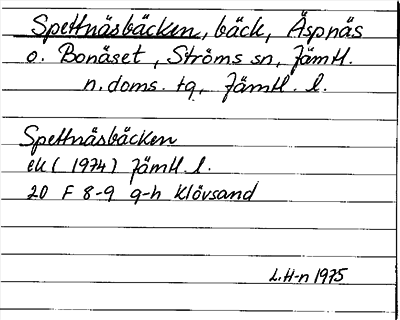 Spettnäsbäcken, bäck, Äspnäs
o. Bonäset, Ströms sn, Jämtl.
n. doms. tg, Jämtl. l.
Spettnäsbäcken
ek (1974) Jämtl. l.
20 F 8-9 g-h Klövsand
L. H-n 1975